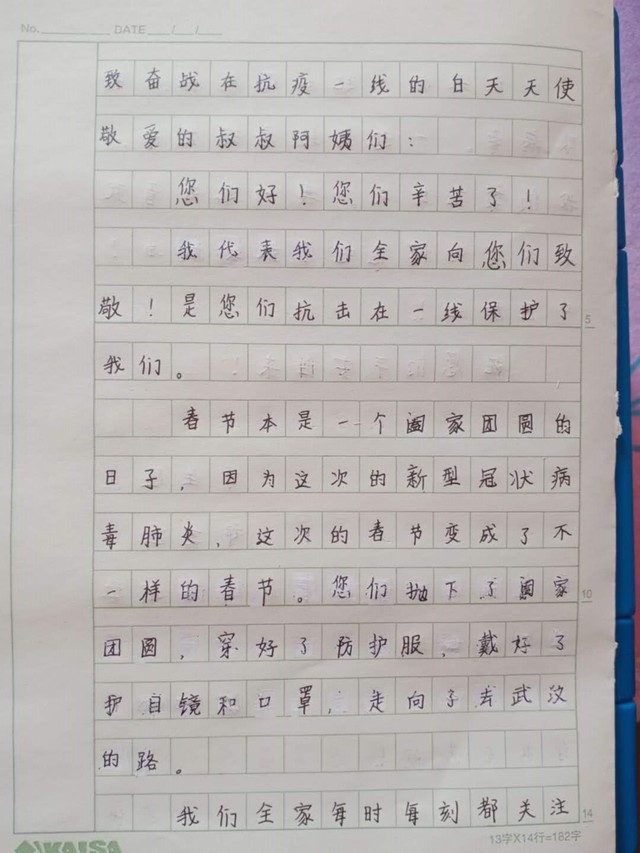 No. DATE / /
致奋战在抗疫一线的白天天使
敬爱的叔叔阿姨们：
您们好！您们辛苦了！
我代表我们全家向您们致
敬！是您们抗击在一线保护了
5
我们。
春节本是一个阖家团圆的
日子，因为这次的新型冠状病
毒肺炎，这次的春节变成了不
一样的春节。您们抛下了阖家
10
团圆，穿好了防护服，戴好了
护目镜和口罩，走向了去武汉
的路。
我们全家每时每刻都关注
14
KAISA
13字X14行=182字